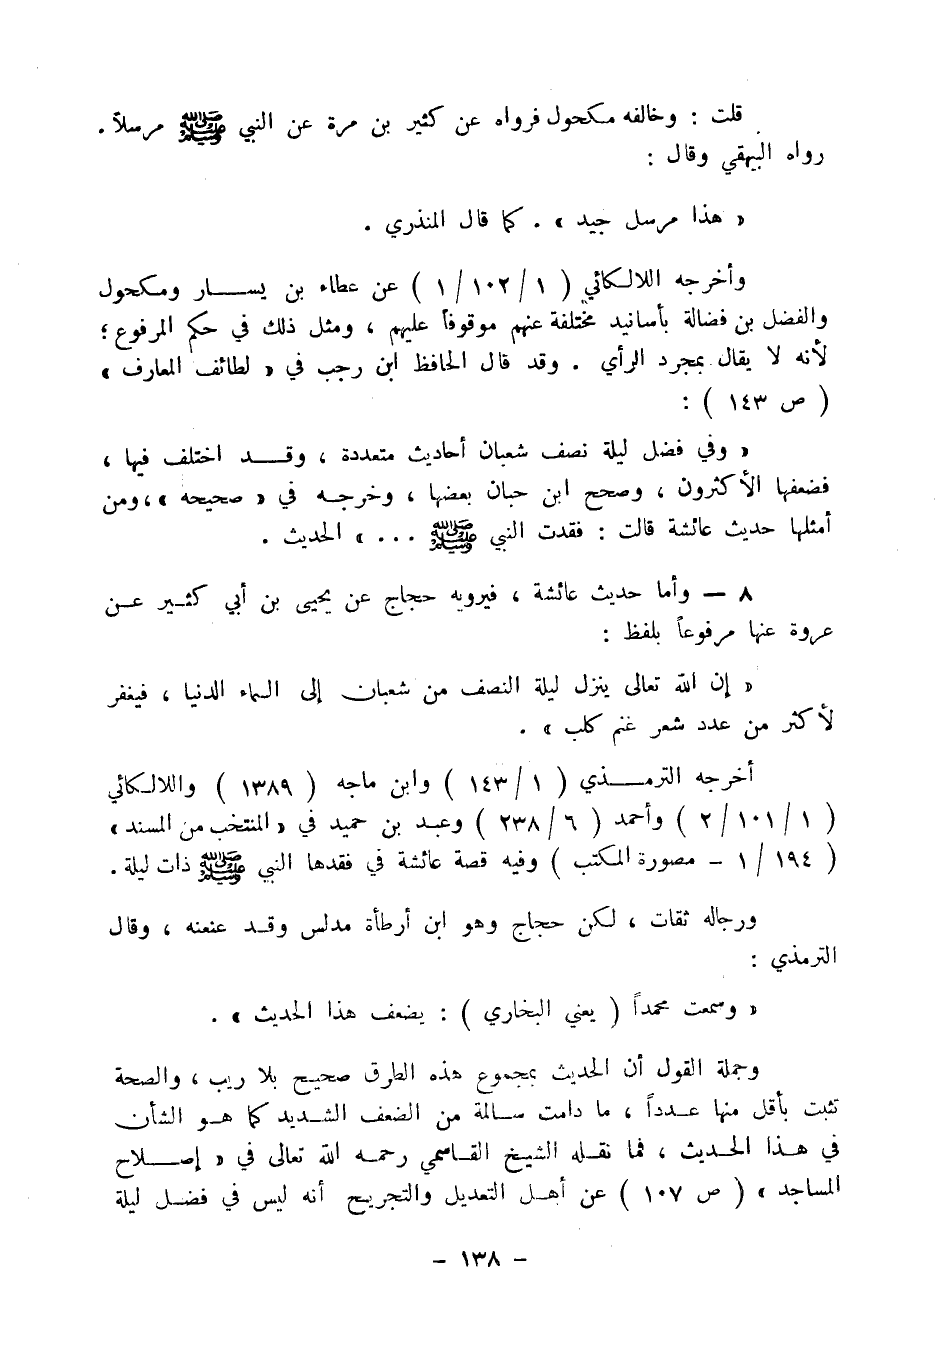 قلت : وخالفه مكحول فرواه عن كثير بن مرة عن النبي ﷺ مرسلاً .
رواه البيهقي وقال :
« هذا مرسل جيد » . كما قال المنذري .
وأخرجه اللالكائي ( ١ / ١٠٢ / ١ ) عن عطاء بن يسار ومكحول
والفضل بن فضالة بأسانيد مختلفة عنهم موقوفاً عليهم ، ومثل ذلك في حكم المرفوع ؛
لأنه لا يقال بمجرد الرأي . وقد قال الحافظ ابن رجب في « لطائف المعارف »
( ص ١٤٣ ) :
« وفي فضل ليلة نصف شعبان أحاديث متعددة ، وقد اختلف فيها ،
فضعفها الأكثرون ، وصحح ابن حبان بعضها ، وخرجه في « صحيحه » ، ومن
أمثلها حديث عائشة قالت : فقدت النبي ﷺ ... » الحديث .
٨ — وأما حديث عائشة ، فيرويه حجاج عن يحيى بن أبي كثير عن
عروة عنها مرفوعاً بلفظ :
« إن الله تعالى ينزل ليلة النصف من شعبان إلى السماء الدنيا ، فيغفر
لأكثر من عدد شعر غنم كلب » .
أخرجه الترمذي ( ١ / ١٤٣ ) وابن ماجه ( ١٣٨٩ ) واللالكائي
( ١ / ١٠١ / ٢ ) وأحمد ( ٦ / ٢٣٨ ) وعبد بن حميد في « المنتخب من المسند »
( ١٩٤ / ١ - مصورة المكتب ) وفيه قصة عائشة في فقدها النبي ﷺ ذات ليلة .
ورجاله ثقات ، لكن حجاج وهو ابن أرطأة مدلس وقد عنعنه ، وقال
الترمذي :
« وسمعت محمداً ( يعني البخاري ) : يضعف هذا الحديث » .
وجملة القول أن الحديث بمجموع هذه الطرق صحيح بلا ريب ، والصحة
تثبت بأقل منها عدداً ، ما دامت سالمة من الضعف الشديد كما هو الشأن
في هذا الحديث ، فما نقله الشيخ القاسمي رحمه الله تعالى في « إصلاح
المساجد » ( ص ١٠٧ ) عن أهل التعديل والتجريح أنه ليس في فضل ليلة
- ١٣٨ -